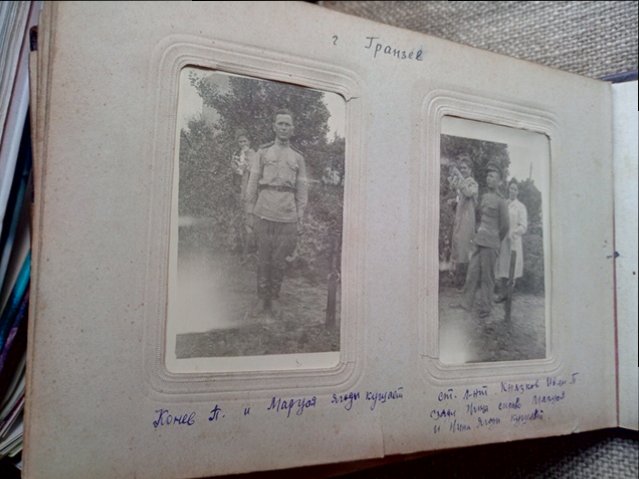 г Гранзев
Конев П. и Маруся ягоды кушает
ст. л-нт. Князков
сзади Нина слева Маруся
и Нина ягоды кушают.